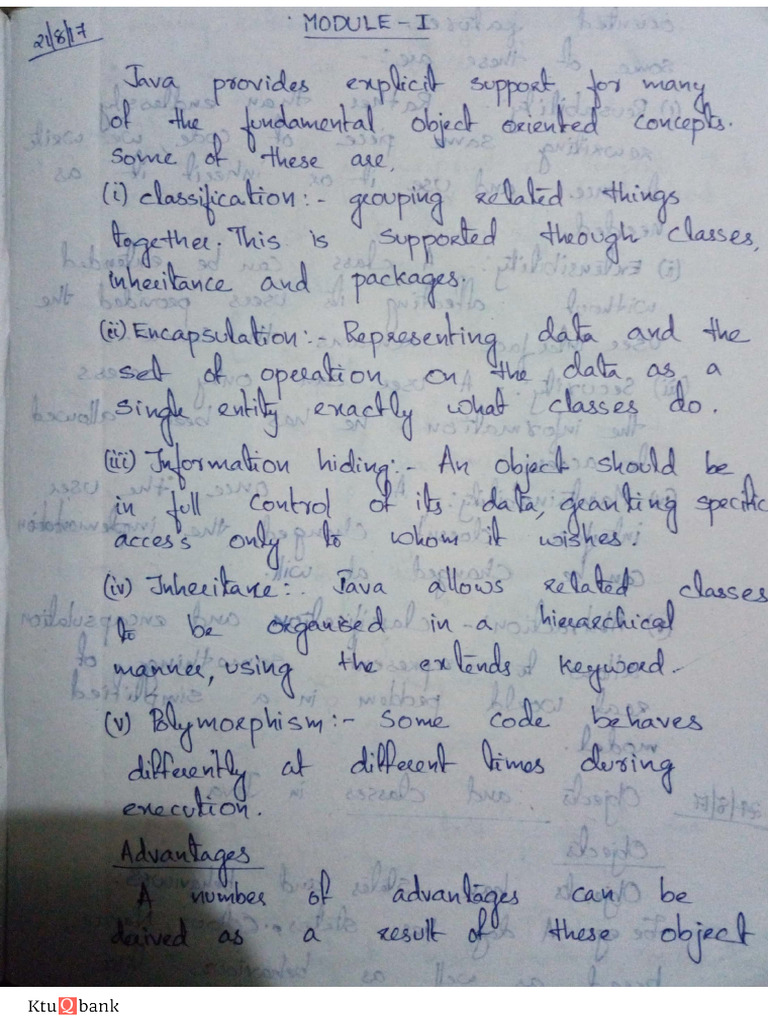 21/8/17
MODULE - I
Java provides explicit support for many
of the fundamental object oriented concepts.
Some of these are,
(i) classification :- grouping related things
together. This is supported through classes,
inheritance and packages.
(ii) Encapsulation :- Representing data and the
set of operation on the data as a
single entity exactly what classes do.
(iii) Information hiding :- An object should be
in full control of its data, granting specific
access only to whom it wishes.
(iv) Inheritance :- Java allows related classes
to be organised in a hierarchical
manner, using the extends keyword.
(v) Polymorphism :- Some code behaves
differently at different times during
execution.
Advantages
A number of advantages can be
derived as a result of these object
KtuQbank